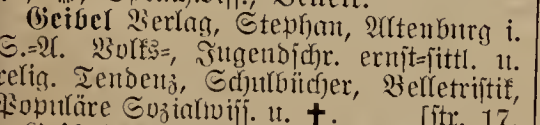 Geibel Verlag, Stephan, Altenburg i.
S.=A. Volks=, Jugendschr. ernst=sittl. u.
relig. Tendenz, Schulbücher, Belletristik,
Populäre Sozialwiss. u. ✝. [str. 17.